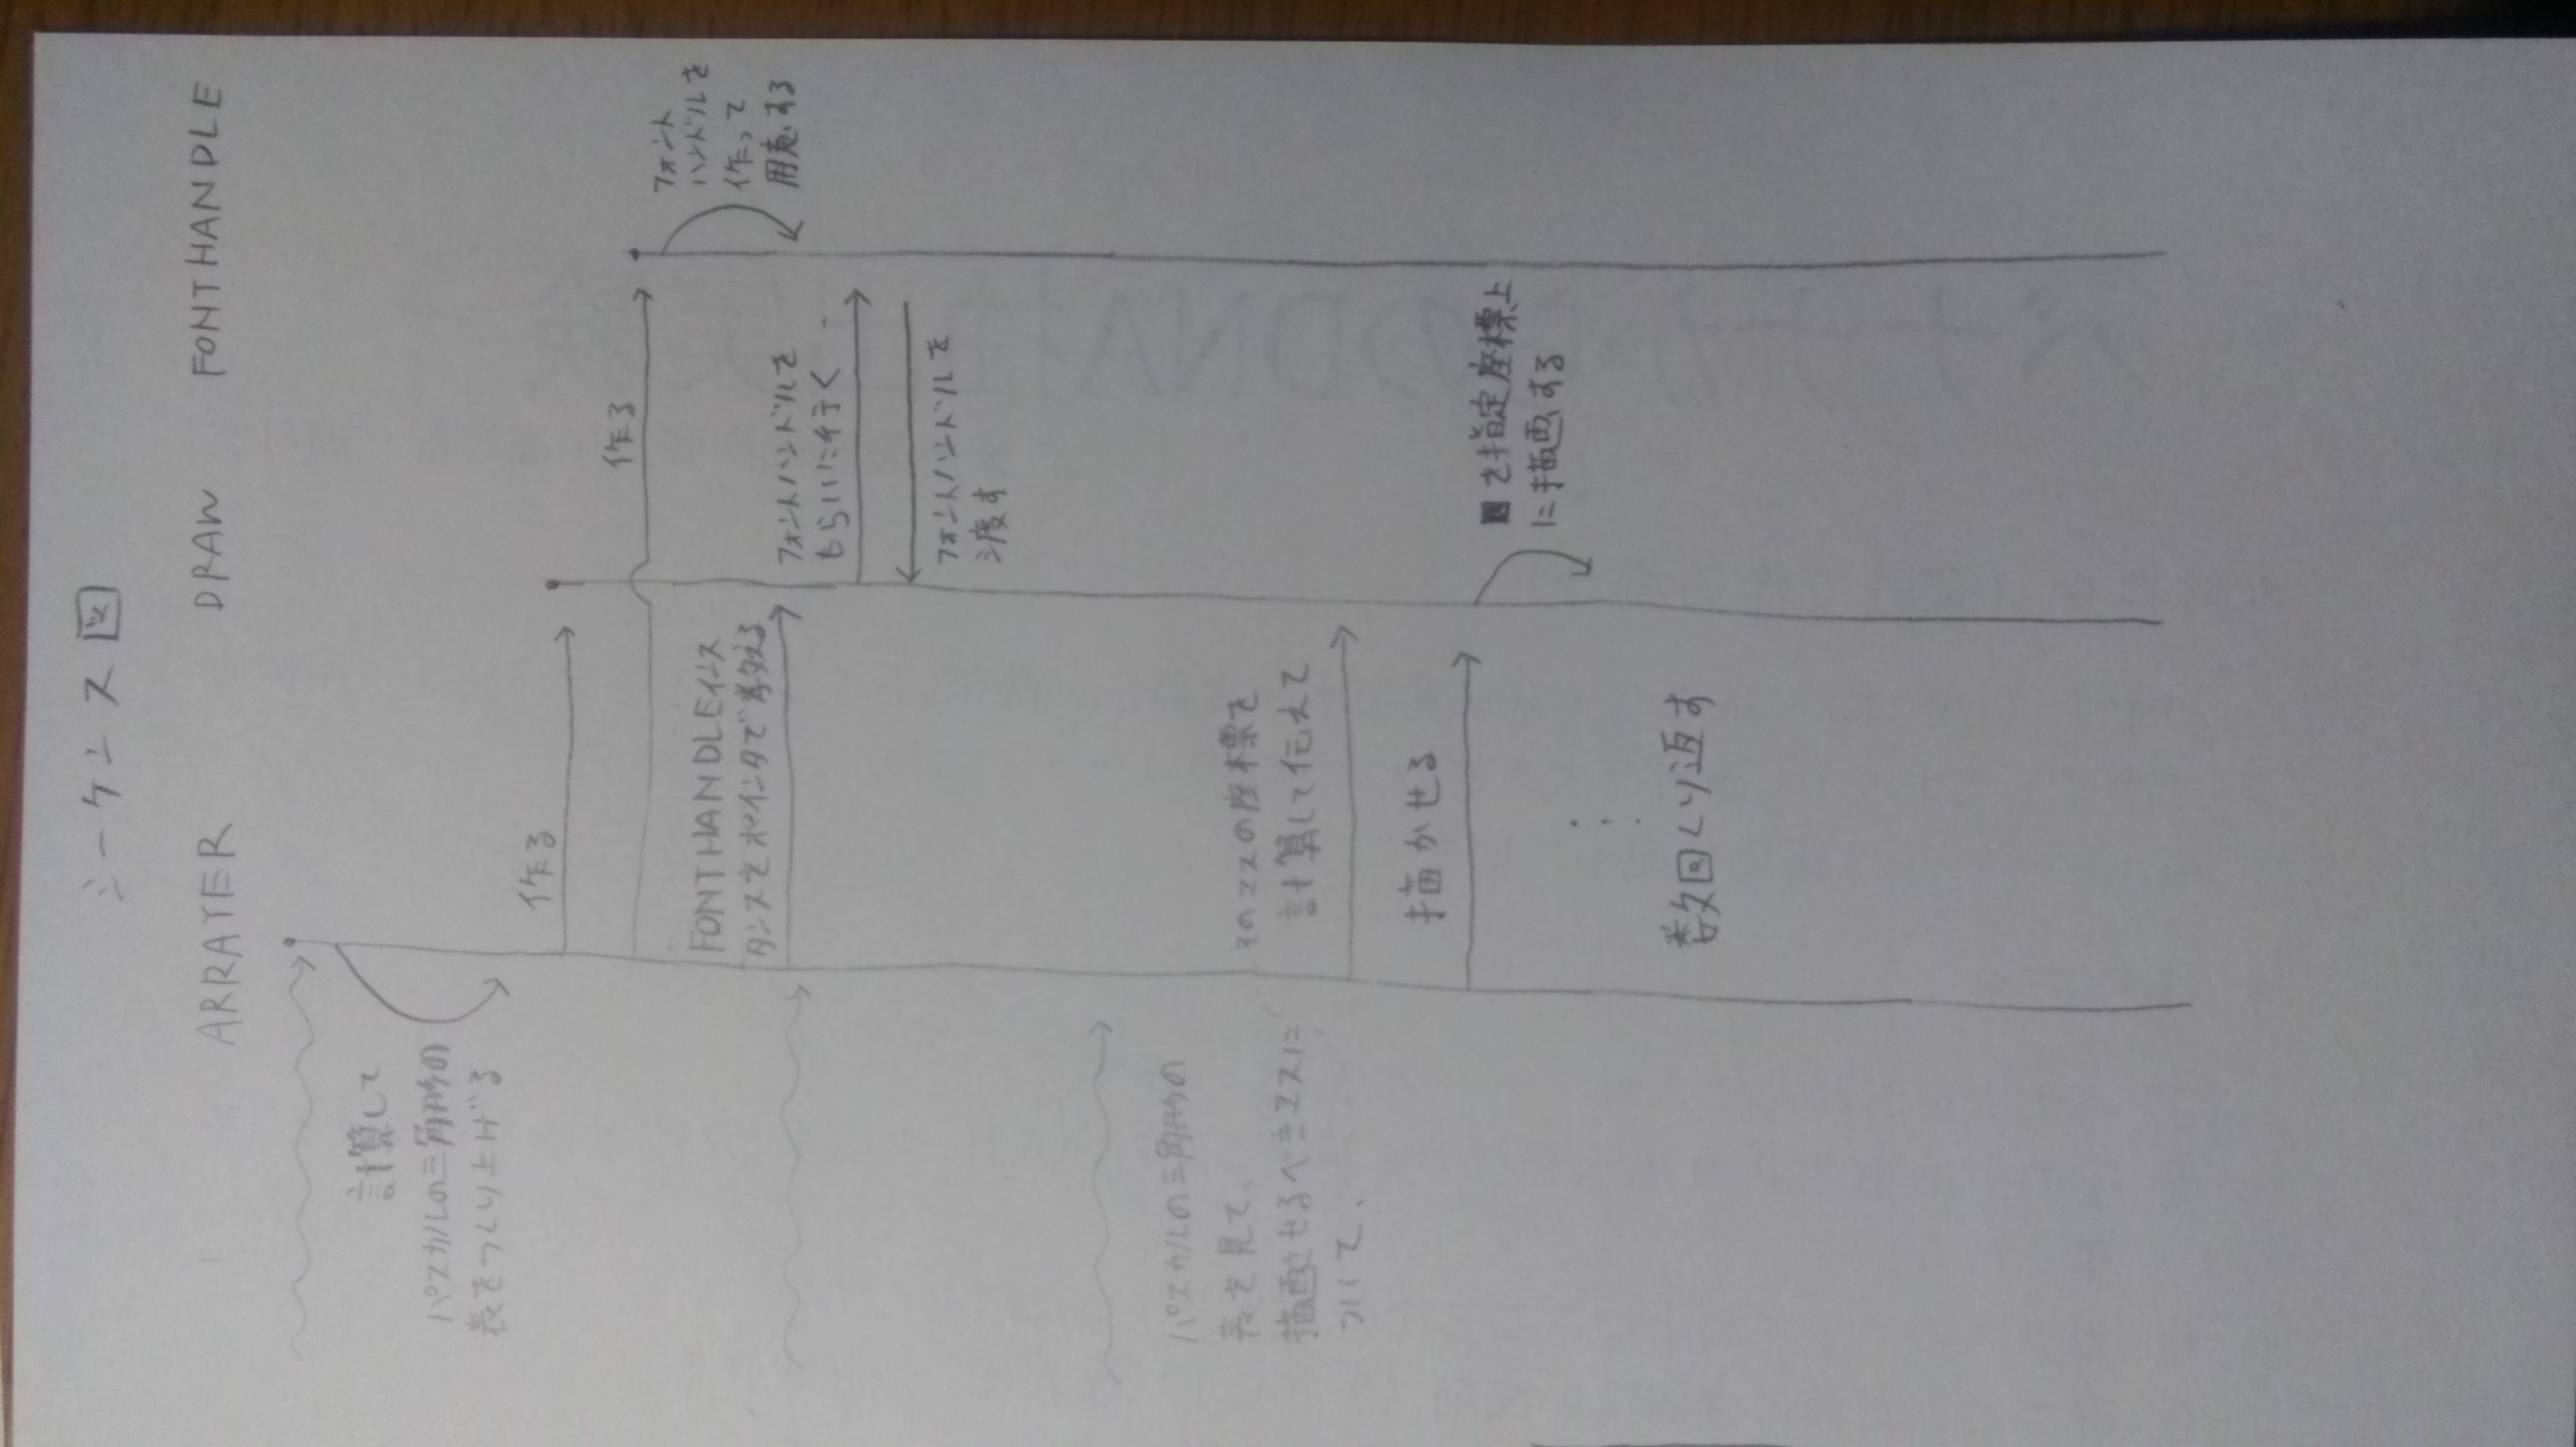 シーケンス図
ARRAYER
DRAW
FONTHANDLE
計算して
パスカルの三角形の
表をつくり上げる
作る
作る
フォント
ハンドルを
作って
用意する
FONTHANDLEインス
タンスをポインタで教える
フォントハンドルを
もらいに行く
フォントハンドルを
渡す
パスカルの三角形の
表を見て、
描画させるべきマスに
ついて、
そのマスの座標を
計算して伝えて
描かせる
■を指定座標上
に描画する
数回くり返す